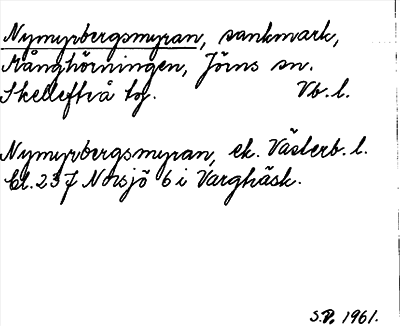 Nymyrbergsmyran, sankmark,
Månghörningen, Jörns sn.
Skellefteå tg. Vb. l.
Nymyrbergsmyran, ek. Västerb. l.
Bl. 237 Norsjö 6 i Vargträsk.
S.P. 1961.